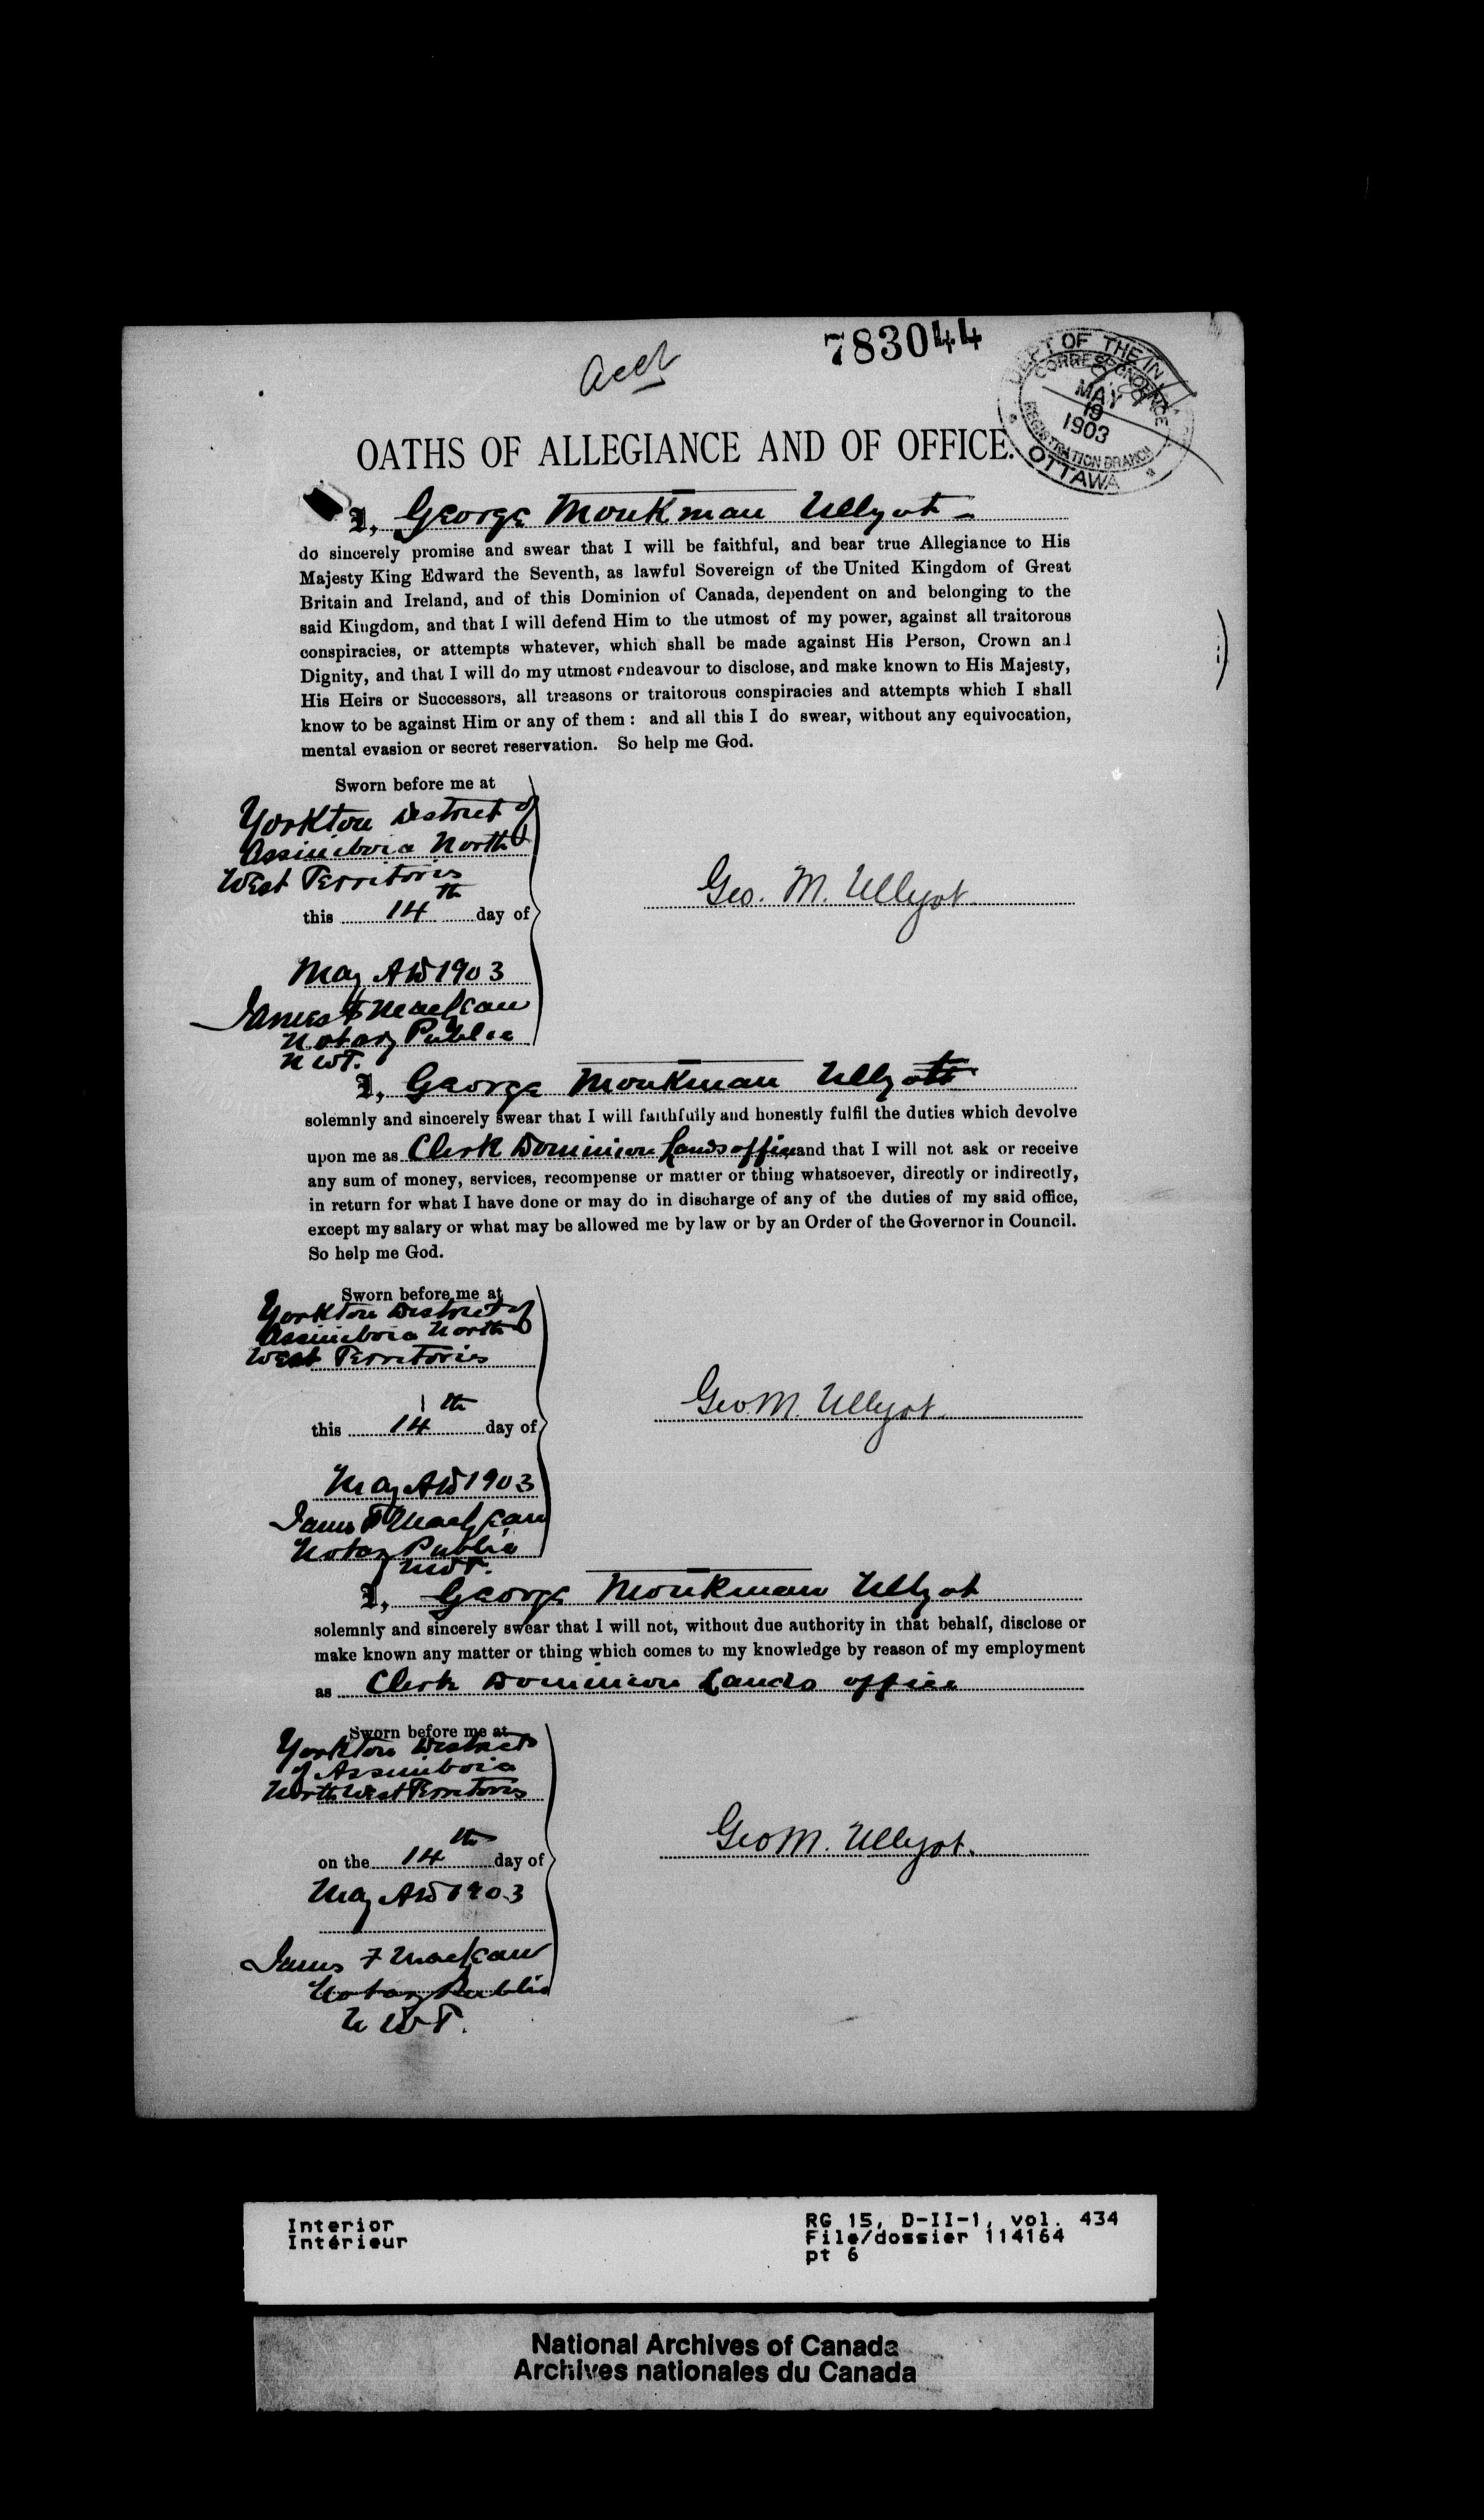 783044
DEPT OF THE IN
CORRESPONDENCE
MAY
19
1903
REGISTRATION BRANCH
OTTAWA
OATHS OF ALLEGIANCE AND OF OFFICE.
I, George Monkman Ullyot
do sincerely promise and swear that I will be faithful, and bear true Allegiance to His
Majesty King Edward the Seventh, as lawful Sovereign of the United Kingdom of Great
Britain and Ireland, and of this Dominion of Canada, dependent on and belonging to the
said Kingdom, and that I will defend Him to the utmost of my power, against all traitorous
conspiracies, or attempts whatever, which shall be made against His Person, Crown and
Dignity, and that I will do my utmost endeavour to disclose, and make known to His Majesty,
His Heirs or Successors, all treasons or traitorous conspiracies and attempts which I shall
know to be against Him or any of them : and all this I do swear, without any equivocation,
mental evasion or secret reservation. So help me God.
Sworn before me at
Yorkton District of
Assiniboia North
West Territories
this 14th day of
Geo. M. Ullyot
May AD 1903
James F
Notary Public
NWT.
I, George Monkman Ullyot
solemnly and sincerely swear that I will faithfully and honestly fulfil the duties which devolve
upon me as Clerk Dominion Lands office and that I will not ask or receive
any sum of money, services, recompense or matter or thing whatsoever, directly or indirectly,
in return for what I have done or may do in discharge of any of the duties of my said office,
except my salary or what may be allowed me by law or by an Order of the Governor in Council.
So help me God.
Sworn before me at
Yorkton District of
Assiniboia North
West Territories
this 14th day of
Geo M. Ullyot
May AD 1903
James F
Notary Public
NWT.
I, George Monkman Ullyot
solemnly and sincerely swear that I will not, without due authority in that behalf, disclose or
make known any matter or thing which comes to my knowledge by reason of my employment
as Clerk Dominion Lands office
Sworn before me at
Yorkton District
of Assiniboia
North West Territories
on the 14th day of
Geo M. Ullyot.
May AD 1903
James F
Notary Public
NWT.
Interior
Intérieur
RG 15, D-II-1, vol. 434
File/dossier 114164
pt 6
National Archives of Canada
Archives nationales du Canada